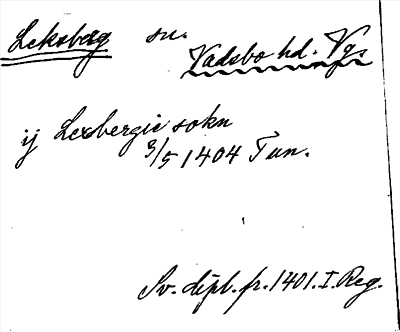 Leksberg sn.
Vadsbo hd. Vgs
ij Lexbergie sokn
3/5 1404 Tun.
Sv. dipl. fr. 1401. I. Reg.